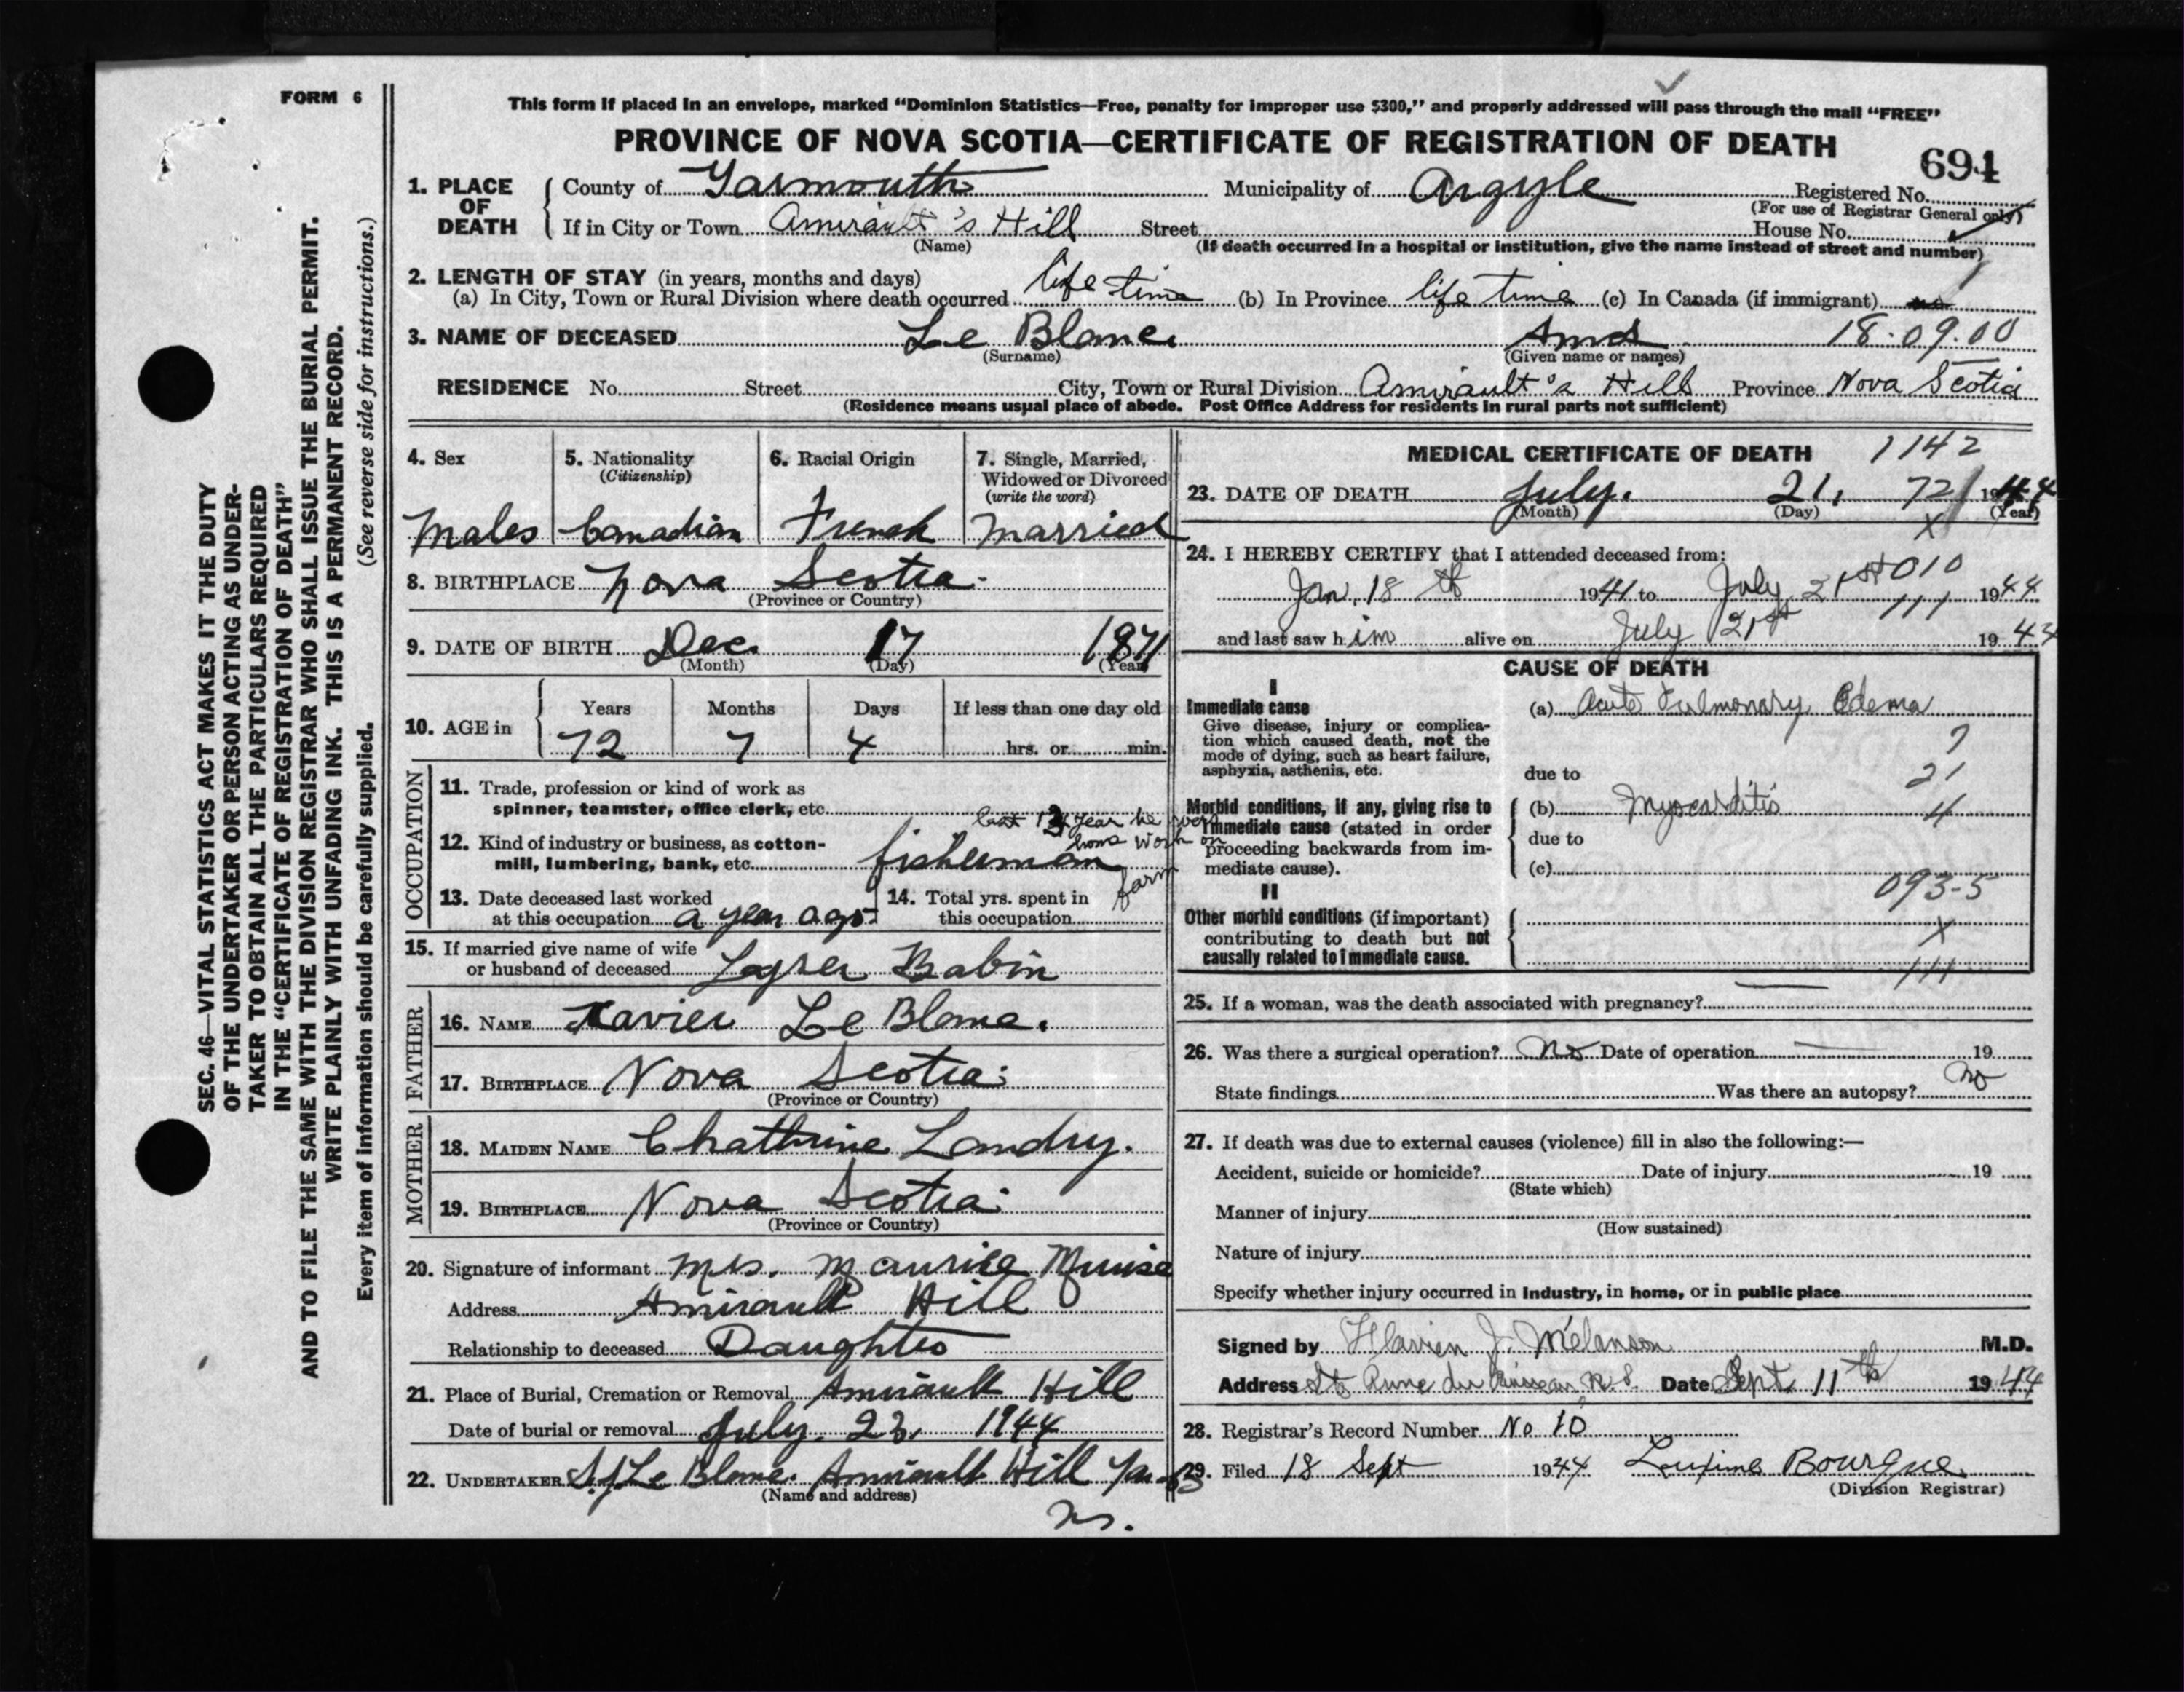 FORM 6
This form if placed in an envelope, marked “Dominion Statistics—Free, penalty for improper use $300,” and properly addressed will pass through the mail “FREE”
PROVINCE OF NOVA SCOTIA—CERTIFICATE OF REGISTRATION OF DEATH
694
1. PLACE OF DEATH
County of Yarmouth Municipality of Argyle Registered No.
(For use of Registrar General only)
If in City or Town Amirault's Hill Street House No.
(Name) (If death occurred in a hospital or institution, give the name instead of street and number)
2. LENGTH OF STAY (in years, months and days)
(a) In City, Town or Rural Division where death occurred life time (b) In Province life time (c) In Canada (if immigrant) no
3. NAME OF DECEASED Le Blanc 18.09.00
(Surname) (Given name or names)
RESIDENCE No. Street City, Town or Rural Division Amirault's Hill Province Nova Scotia
(Residence means usual place of abode. Post Office Address for residents in rural parts not sufficient)
4. Sex
Males
5. Nationality
(Citizenship)
Canadian
6. Racial Origin
French
7. Single, Married, Widowed or Divorced
(write the word)
Married
8. BIRTHPLACE Nova Scotia
(Province or Country)
9. DATE OF BIRTH Dec. 17 1871
(Month) (Day) (Year)
10. AGE in
Years Months Days If less than one day old
72 7 4 hrs. or min.
OCCUPATION
11. Trade, profession or kind of work as
spinner, teamster, office clerk, etc.
12. Kind of industry or business, as cotton-
mill, lumbering, bank, etc. fisherman
farm
13. Date deceased last worked
at this occupation a year ago
14. Total yrs. spent in
this occupation
15. If married give name of wife
or husband of deceased Babin
FATHER
16. NAME Xavier Le Blanc.
17. BIRTHPLACE Nova Scotia
(Province or Country)
MOTHER
18. MAIDEN NAME Chathrine Landry.
19. BIRTHPLACE Nova Scotia
(Province or Country)
20. Signature of informant Mrs. Maurice Muise
Address Amirault Hill
Relationship to deceased Daughter
21. Place of Burial, Cremation or Removal Amirault Hill
Date of burial or removal July 23, 1944
22. UNDERTAKER S.J. Le Blanc. Amirault Hill
(Name and address)
N.S.
MEDICAL CERTIFICATE OF DEATH 1142
23. DATE OF DEATH July. 21, 72 1944
(Month) (Day) (Year)
X
24. I HEREBY CERTIFY that I attended deceased from:
010
Jan. 18th 1941 to July 21st 1944
111
and last saw him alive on July 21st 1944
CAUSE OF DEATH
I
Immediate cause
Give disease, injury or complica-
tion which caused death, not the
mode of dying, such as heart failure,
asphyxia, asthenia, etc.
(a) Acute Pulmonary Edema
due to 21
Morbid conditions, if any, giving rise to
immediate cause (stated in order
proceeding backwards from im-
mediate cause).
(b) Myocarditis
due to
(c)
093-5
II
Other morbid conditions (if important)
contributing to death but not
causally related to immediate cause.
X
111
25. If a woman, was the death associated with pregnancy?
26. Was there a surgical operation? No Date of operation 19
State findings Was there an autopsy? No
27. If death was due to external causes (violence) fill in also the following:—
Accident, suicide or homicide? Date of injury 19
(State which)
Manner of injury
(How sustained)
Nature of injury
Specify whether injury occurred in Industry, in home, or in public place
Signed by Flavien J. Melanson M.D.
Address St Anne du Ruisseau N.S. Date Sept. 11th 1944
28. Registrar's Record Number No 10
29. Filed 18 Sept 1944 Bourque
(Division Registrar)
SEC. 46—VITAL STATISTICS ACT MAKES IT THE DUTY
OF THE UNDERTAKER OR PERSON ACTING AS UNDER-
TAKER TO OBTAIN ALL THE PARTICULARS REQUIRED
IN THE “CERTIFICATE OF REGISTRATION OF DEATH”
AND TO FILE THE SAME WITH THE DIVISION REGISTRAR WHO SHALL ISSUE THE BURIAL PERMIT.
WRITE PLAINLY WITH UNFADING INK. THIS IS A PERMANENT RECORD.
Every item of information should be carefully supplied. (See reverse side for instructions.)